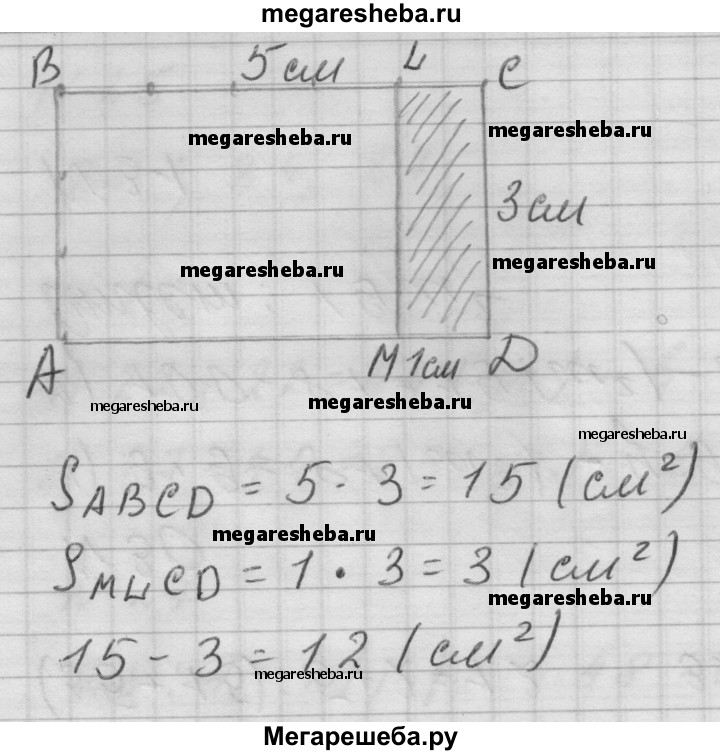 megaresheba.ru
B 5 см L C
megaresheba.ru megaresheba.ru
3 см
megaresheba.ru megaresheba.ru
A M 1см D
megaresheba.ru megaresheba.ru
megaresheba.ru
S ABCD = 5 · 3 = 15 (см²)
megaresheba.ru
S MLCD = 1 · 3 = 3 (см²)
megaresheba.ru
15 - 3 = 12 (см²)
megaresheba.ru
Мегарешеба.ру